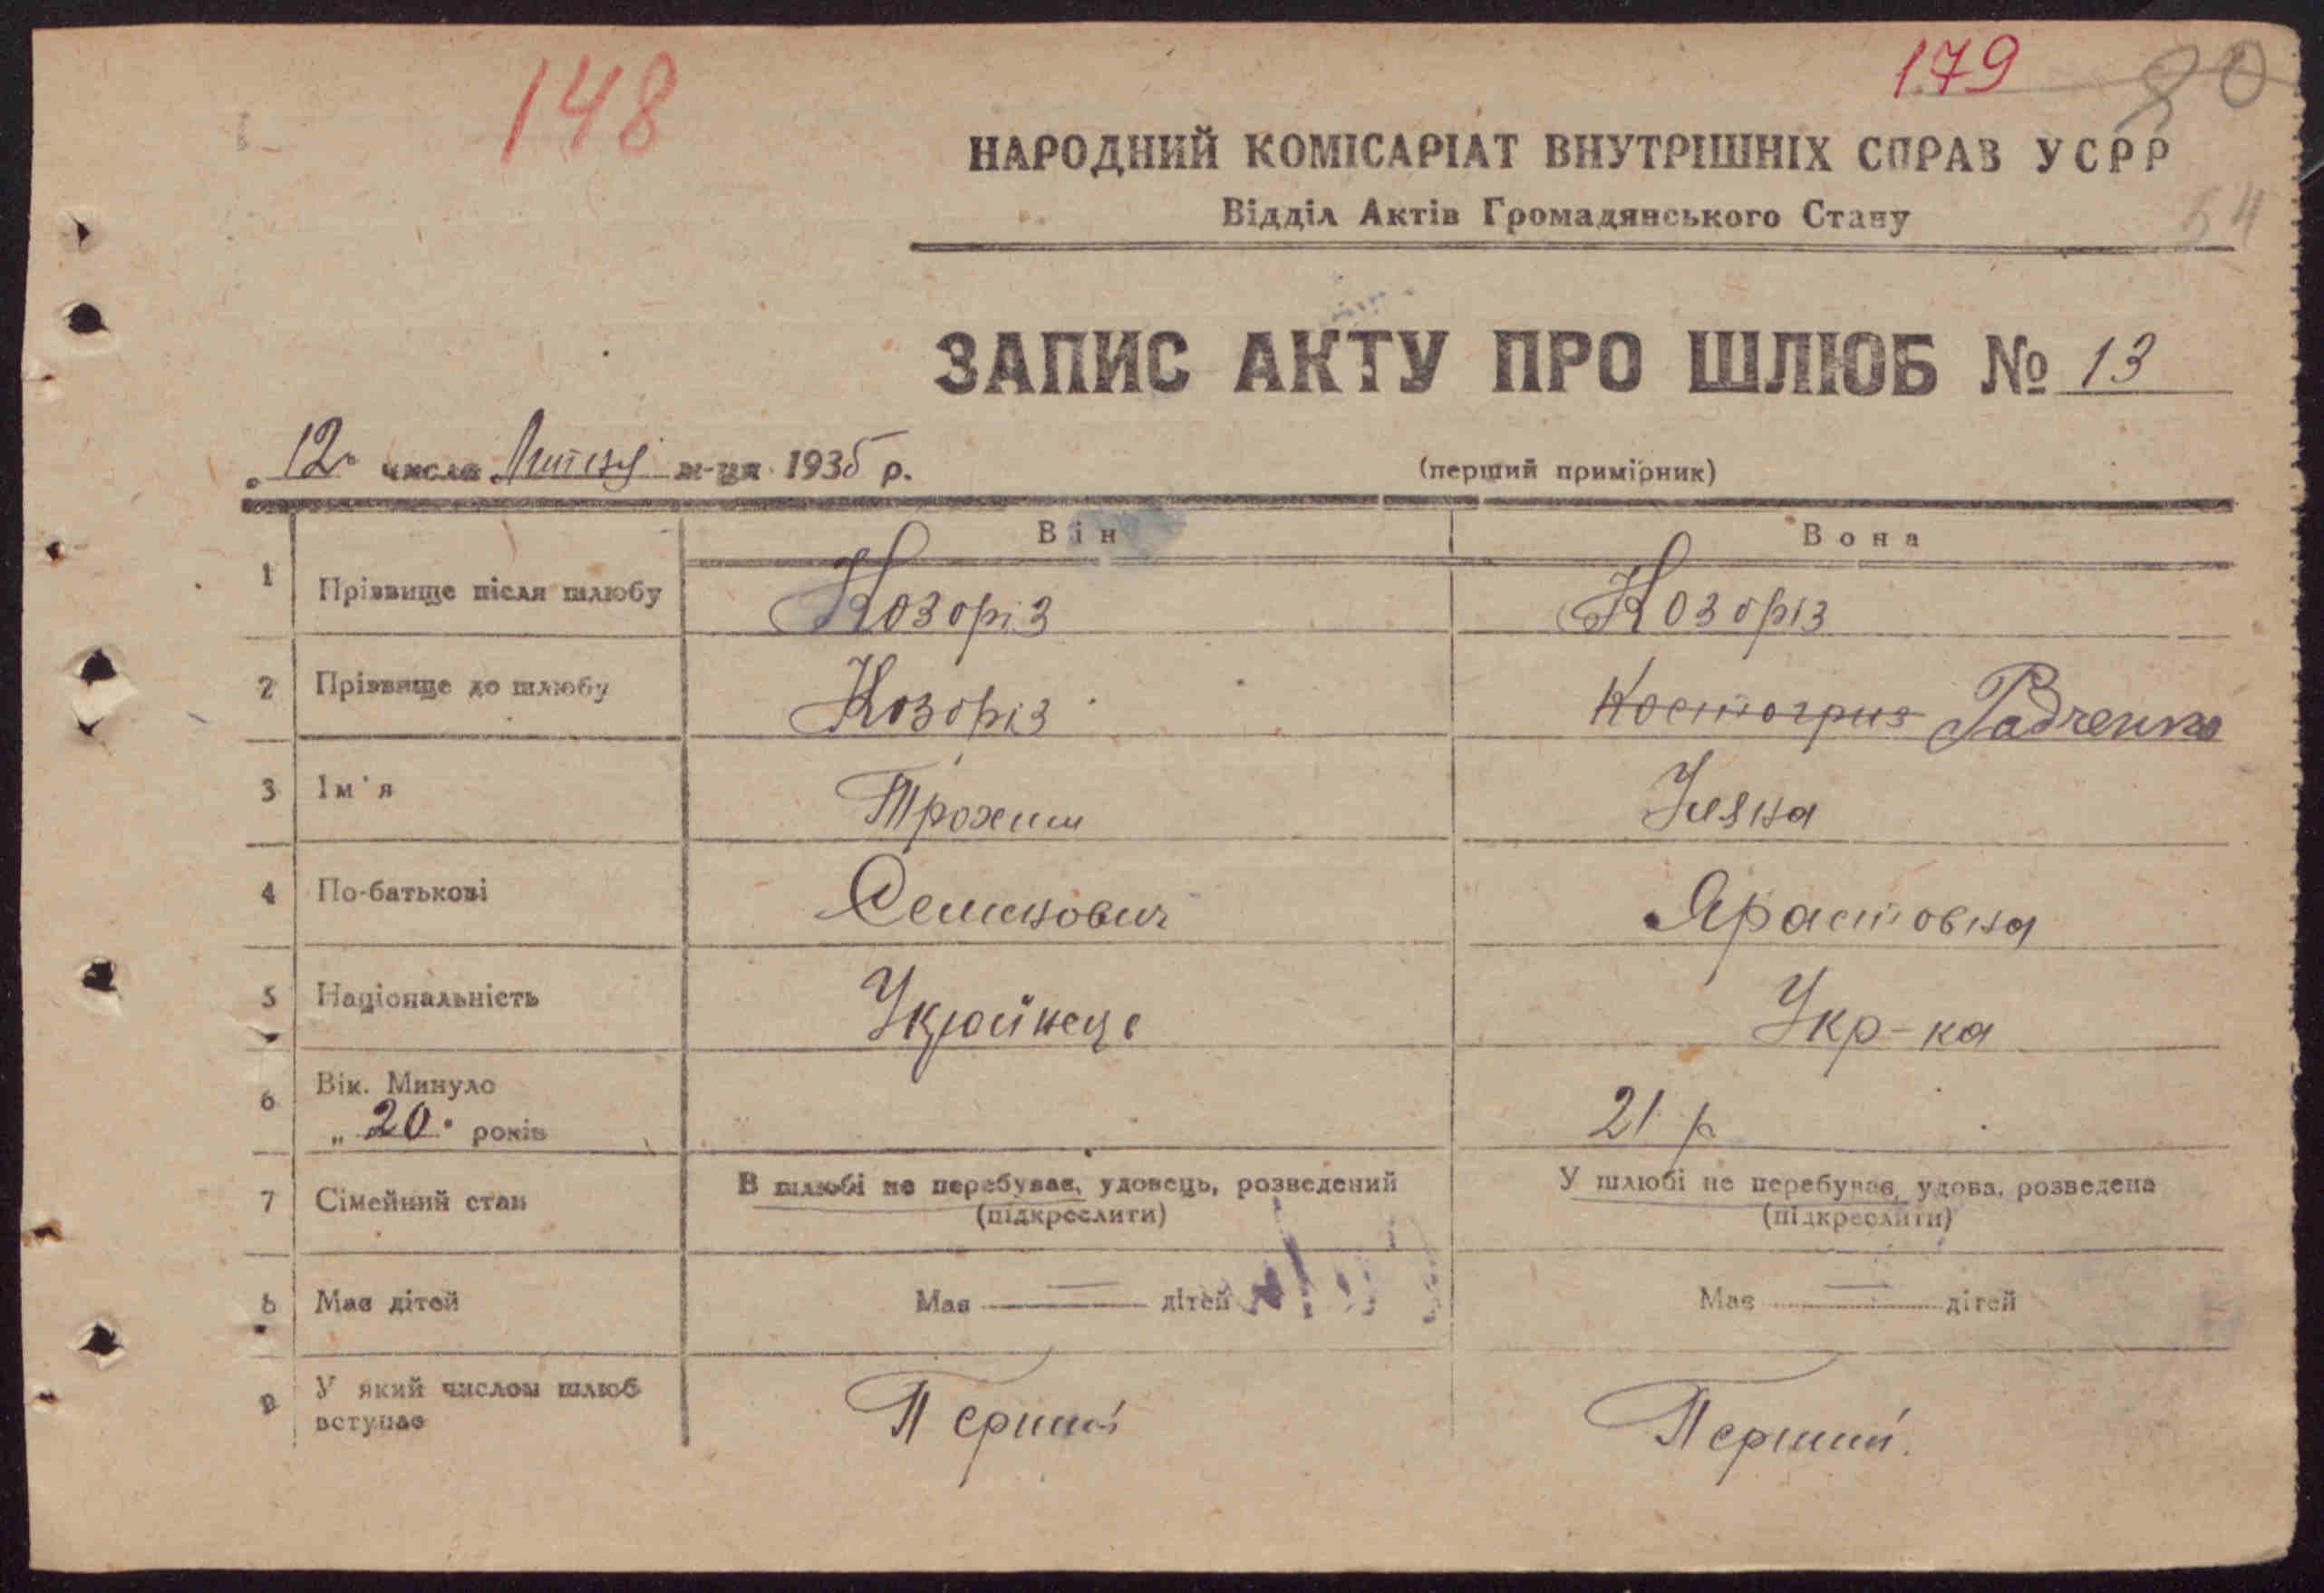 148
179
80
НАРОДНИЙ КОМІСАРІАТ ВНУТРІШНІХ СПРАВ УСРР
Відділ Актів Громадянського Стану
54
ЗАПИС АКТУ ПРО ШЛЮБ № 13
„12" числа Лютого м-ця 1935 р.
(перший примірник)
Він Вона
1 Прізвище після шлюбу Козоріз Козоріз
2 Прізвище до шлюбу Козоріз Костогриз Радченко
3 Ім'я Трохим Уляна
4 По-батькові СеменовичЯрастовна
5 Національність Українець Укр-ка
6 Вік. Минуло
„20" років 21 р
7 Сімейний стан В шлюбі не перебуває, удовець, розведений У шлюбі не перебуває, удова, розведена
(підкреслити) (підкреслити)
8 Має дітей Має — дітей Має — дітей
9 У який числом шлюб
вступає Перший Перший.